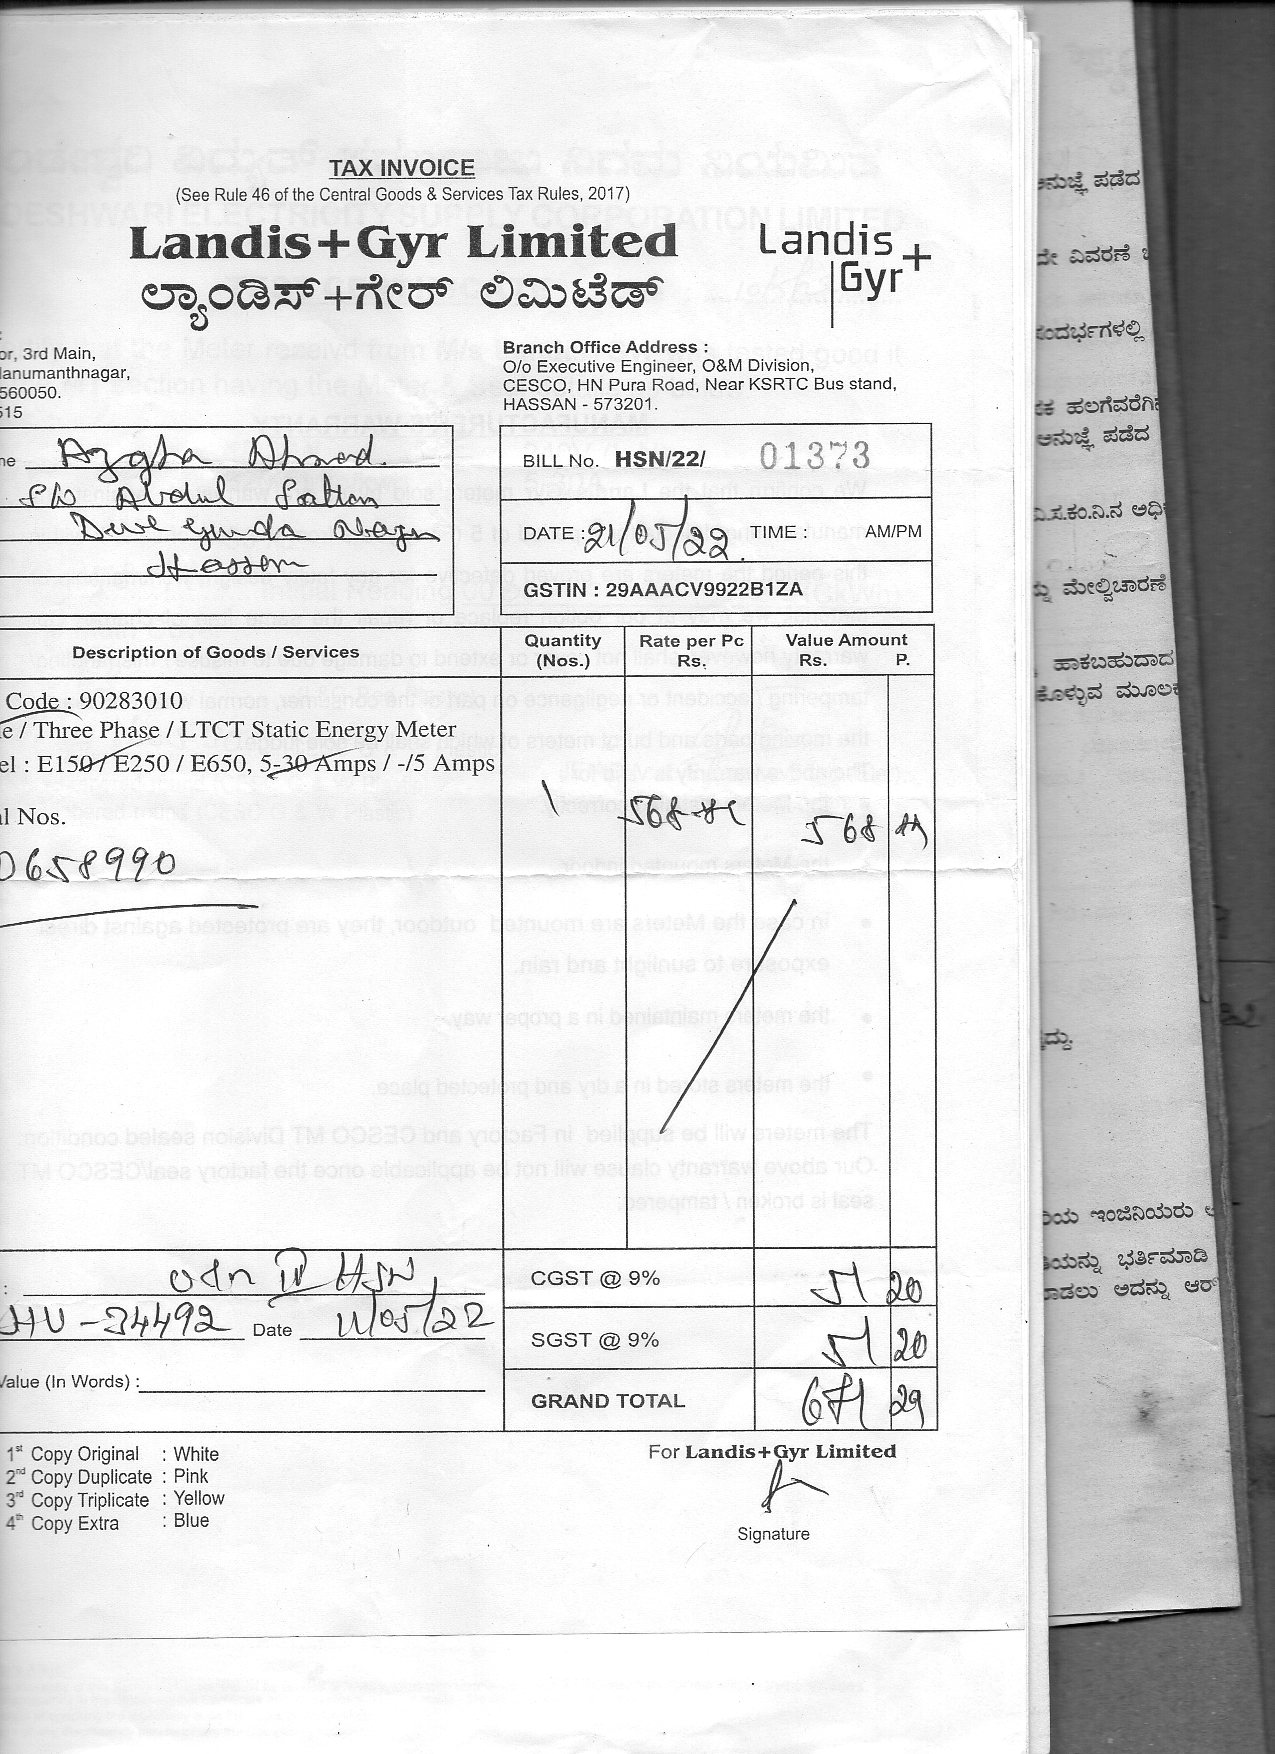 TAX INVOICE
(See Rule 46 of the Central Goods & Services Tax Rules, 2017)
Landis+Gyr Limited
ಲ್ಯಾಂಡಿಸ್+ಗೇರ್ ಲಿಮಿಟೆಡ್
Landis+
Gyr
or, 3rd Main,
anumanthnagar,
560050.
515
Branch Office Address :
O/o Executive Engineer, O&M Division,
CESCO, HN Pura Road, Near KSRTC Bus stand,
HASSAN - 573201.
ne Azgha Ahmed.
S/o Abdul
Hassan
BILL No. HSN/22/ 01373
DATE : 21/05/22. TIME : AM/PM
GSTIN : 29AAACV9922B1ZA
Description of Goods / Services Quantity (Nos.) Rate per Pc Rs. Value Amount Rs. P.
Code : 90283010
e / Three Phase / LTCT Static Energy Meter
el : E150 / E250 / E650, 5-30 Amps / -/5 Amps
l Nos.
1 568 568
0658990
HSN
HU - 34492 Date 11/05/22
Value (In Words) :
CGST @ 9% 51 20
SGST @ 9% 51 20
GRAND TOTAL 671 29
1st Copy Original : White
2nd Copy Duplicate : Pink
3rd Copy Triplicate : Yellow
4th Copy Extra : Blue
For Landis+Gyr Limited
Signature
ಅನುಜ್ಞೆ ಪಡೆದ
ದೇ ವಿವರಣೆ
ಸಂದರ್ಭಗಳಲ್ಲಿ
ಅನುಜ್ಞೆ ಪಡೆದ
ವಿ.ಸ.ಕಂ.ನಿ.ನ
ಮೇಲ್ವಿಚಾರಣೆ
ಹಾಕಬಹುದಾದ
ಕೊಳ್ಳುವ
ಇಂಜಿನಿಯರು
ಭರ್ತಿಮಾಡಿ
ಅದನ್ನು